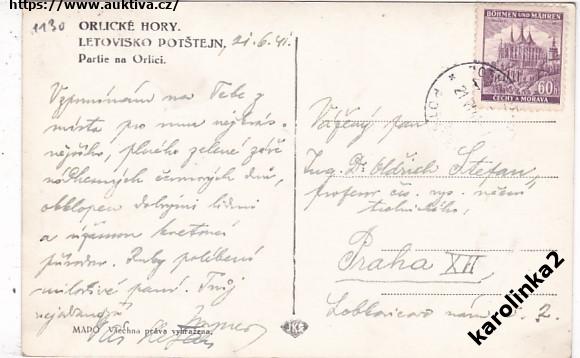 https://www.auktiva.cz/
1130
ORLICKÉ HORY.
LETOVISKO POTŠTEJN, 21.6.41.
Partie na Orlici.
BÖHMEN UND MÄHREN
60h
ČECHY A MORAVA
Vzpomínám na Tebe z
místa pro mne nejkrás-
nějšího, plného zelené záře
nádherných červnových dnů,
obklopen dobrými lidmi
a úžasnou kvetoucí
přírodou. Ruky políbení
milostivé paní. Tvůj
MADO Všechna práva vyhražena.
Vážený pan
Ing. Dr. Oldřich Štefan,
profesor čs. vys. učení
technického,
Praha XII
nám. č. 2.
karolinka2